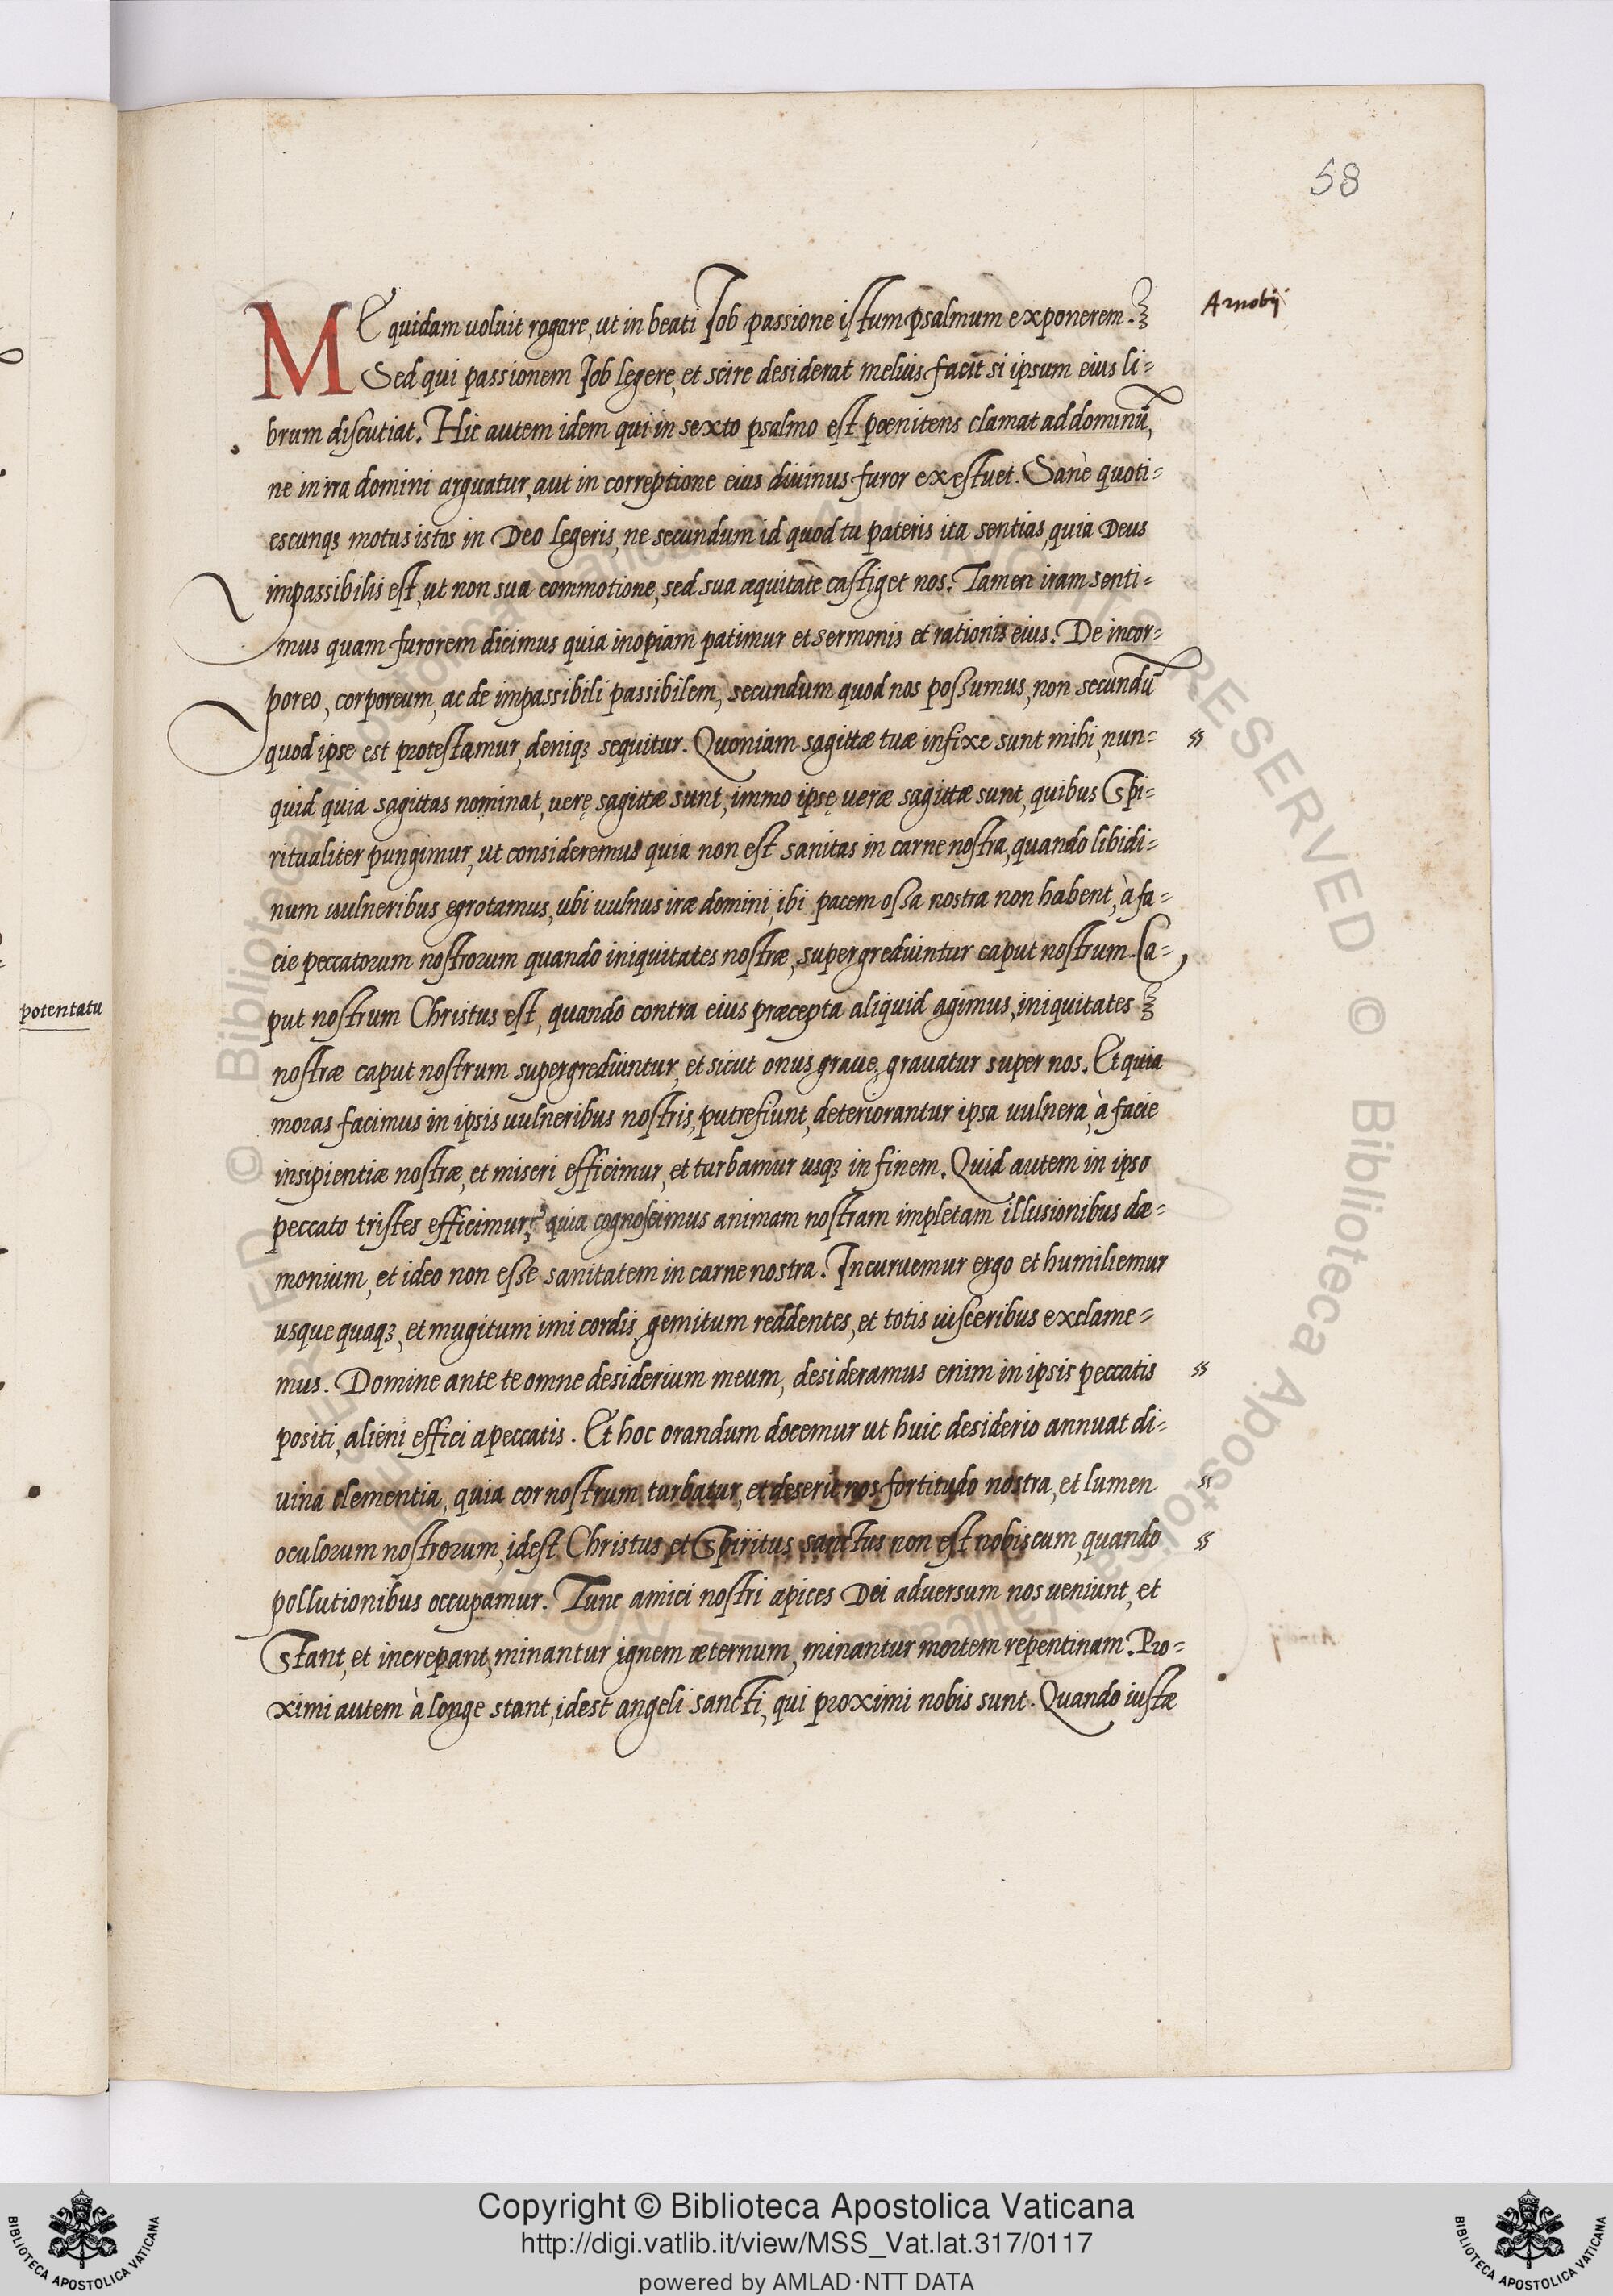 58
Arnobij
ME quidam uoluit rogare, ut in beati Job passione istum psalmum exponerem.
Sed qui passionem Job legere, et scire desiderat melius facit si ipsum eius li=
brum discutiat. Hic autem idem qui in sexto psalmo est pœnitens clamat ad dominū,
ne in ira domini arguatur, aut in correptione eius diuinus furor exestuet. Sanè quoti=
escunqꝫ motus istos in Deo legeris, ne secundum id quod tu pateris ita sentias, quia Deus
impassibilis est, ut non sua commotione, sed sua æquitate castiget nos. Tamen iram senti=
mus quam furorem dicimus quia inopiam patimur et sermonis et rationis eius. De incor=
poreo, corporeum, ac de impassibili passibilem, secundum quod nos possumus, non secundū
quod ipse est protestamur, deniqꝫ sequitur. Quoniam sagittæ tuæ infixe sunt mihi, nun=
quid quia sagittas nominat, uerę sagittæ sunt, immo ipsę ueræ sagittæ sunt, quibus Spi=
ritualiter pungimur, ut consideremus quia non est sanitas in carne nostra, quando libidi=
num uulneribus egrotamus, ubi uulnus iræ domini, ibi pacem ossa nostra non habent, à fa=
cie peccatorum nostrorum quando iniquitates nostræ, supergrediuntur caput nostrum. Ca=
put nostrum Christus est, quando contra eius præcepta aliquid agimus, iniquitates
nostræ caput nostrum supergrediuntur, et sicut onus graue, grauatur super nos. Et quia
moras facimus in ipsis uulneribus nostris, putrefiunt, deteriorantur ipsa uulnera, à facie
insipientiæ nostræ, et miseri efficimur, et turbamur usqꝫ in finem. Quid autem in ipso
peccato tristes efficimur? quia cognoscimus animam nostram impletam illusionibus dæ=
monium, et ideo non esse sanitatem in carne nostra. Incuruemur ergo et humiliemur
usque quaqꝫ, et mugitum imi cordis, gemitum reddentes, et totis uisceribus exclame=
mus. Domine ante te omne desiderium meum, desideramus enim in ipsis peccatis
positi, alieni effici a peccatis. Et hoc orandum docemur ut huic desiderio annuat di=
uina clementia, quia cor nostrum turbatur, et deserit nos fortitudo nostra, et lumen
oculorum nostrorum, idest Christus, et Spiritus sanctus non est nobiscum, quando
pollutionibus occupamur. Tunc amici nostri apices Dei aduersum nos ueniunt, et
Stant, et increpant, minantur ignem æternum, minantur mortem repentinam. Pro=
ximi autem à longe stant, idest angeli sancti, qui proximi nobis sunt. Quando iustæ
potentatu
© Biblioteca Apostolica Vaticana
ALL RIGHTS RESERVED
Copyright © Biblioteca Apostolica Vaticana
http://digi.vatlib.it/view/MSS_Vat.lat.317/0117
powered by AMLAD·NTT DATA
BIBLIOTECA APOSTOLICA VATICANA
BIBLIOTECA APOSTOLICA VATICANA